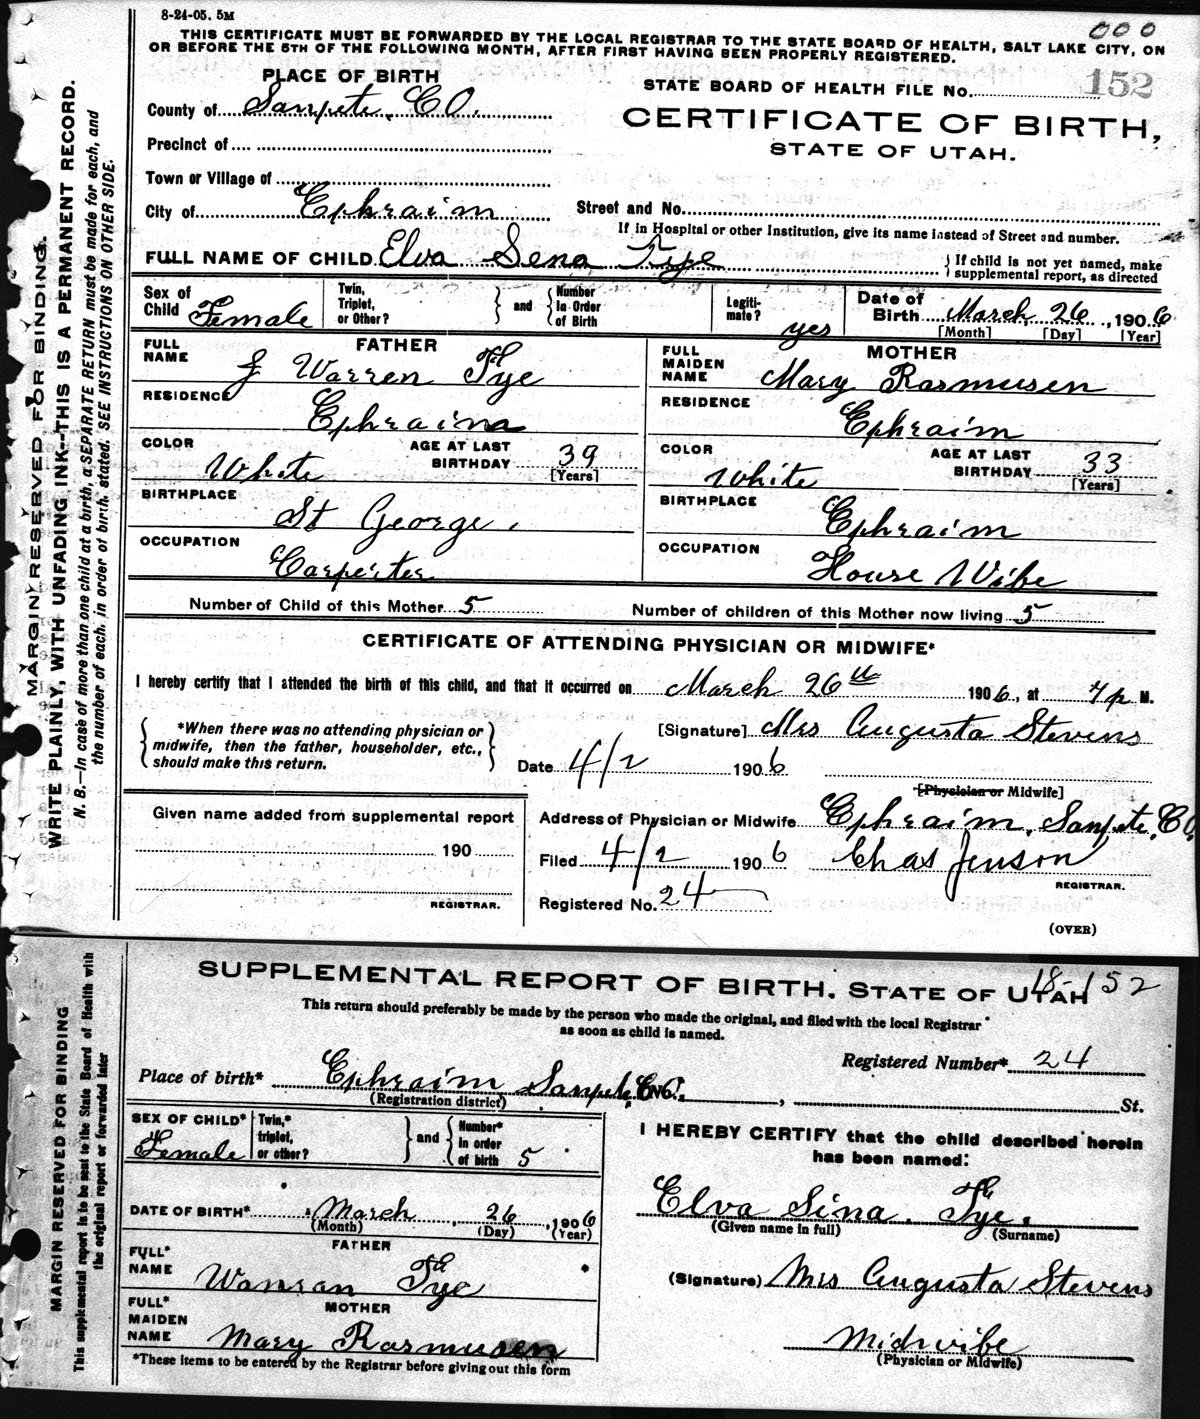 8-24-05. 5M
000
THIS CERTIFICATE MUST BE FORWARDED BY THE LOCAL REGISTRAR TO THE STATE BOARD OF HEALTH, SALT LAKE CITY, ON
OR BEFORE THE 5TH OF THE FOLLOWING MONTH, AFTER FIRST HAVING BEEN PROPERLY REGISTERED.
PLACE OF BIRTH
STATE BOARD OF HEALTH FILE No. 152
County of Sanpete, CO.
CERTIFICATE OF BIRTH,
STATE OF UTAH.
Precinct of
Town or Village of
City of Ephraim
Street and No.
If in Hospital or other Institution, give its name instead of Street and number.
FULL NAME OF CHILD Elva Sena Tye
If child is not yet named, make
supplemental report, as directed
Sex of Child Female
Twin, Triplet, or Other?
and
Number In Order of Birth
Legiti-mate? yes
Date of Birth March 26, 1906
[Month] [Day] [Year]
FATHER
FULL NAME J Warren Tye
RESIDENCE Ephraim
COLOR White
AGE AT LAST BIRTHDAY 39
[Years]
BIRTHPLACE St George.
OCCUPATION Carpenter
MOTHER
FULL MAIDEN NAME Mary Rasmusen
RESIDENCE Ephraim
COLOR White
AGE AT LAST BIRTHDAY 33
[Years]
BIRTHPLACE Ephraim
OCCUPATION House Wife
Number of Child of this Mother 5
Number of children of this Mother now living 5
CERTIFICATE OF ATTENDING PHYSICIAN OR MIDWIFE*
I hereby certify that I attended the birth of this child, and that it occurred on March 26th 1906, at 7 p M.
*When there was no attending physician or
midwife, then the father, householder, etc.,
should make this return.
[Signature] Mrs Augusta Stevens
Date 4/2 1906
[Physician or Midwife]
Given name added from supplemental report
190
REGISTRAR.
Address of Physician or Midwife Ephraim, Sanpete, CO
Filed 4/2 1906 Chas Jenson
REGISTRAR.
Registered No. 24
(OVER)
MARGIN RESERVED FOR BINDING.
WRITE PLAINLY, WITH UNFADING INK--THIS IS A PERMANENT RECORD.
N. B.—In case of more than one child at a birth, a SEPARATE RETURN must be made for each, and
the number of each, in order of birth, stated. SEE INSTRUCTIONS ON OTHER SIDE.
SUPPLEMENTAL REPORT OF BIRTH. STATE OF UTAH
18-152
This return should preferably be made by the person who made the original, and filed with the local Registrar
as soon as child is named.
Registered Number* 24
Place of birth* Ephraim Sanpete, CO.
(Registration district)
St.
SEX OF CHILD* Female
Twin,* triplet, or other?
and
Number* In order of birth 5
DATE OF BIRTH* March 26, 1906
(Month) (Day) (Year)
FATHER
FULL* NAME Warran Tye
MOTHER
FULL* MAIDEN NAME Mary Rasmusen
*These items to be entered by the Registrar before giving out this form
I HEREBY CERTIFY that the child described herein
has been named:
Elva Sina. Tye.
(Given name in full) (Surname)
(Signature) Mrs Augusta Stevens
Midwife
(Physician or Midwife)
MARGIN RESERVED FOR BINDING
This supplemental report is to be sent to the State Board of Health with
the original report or forwarded later